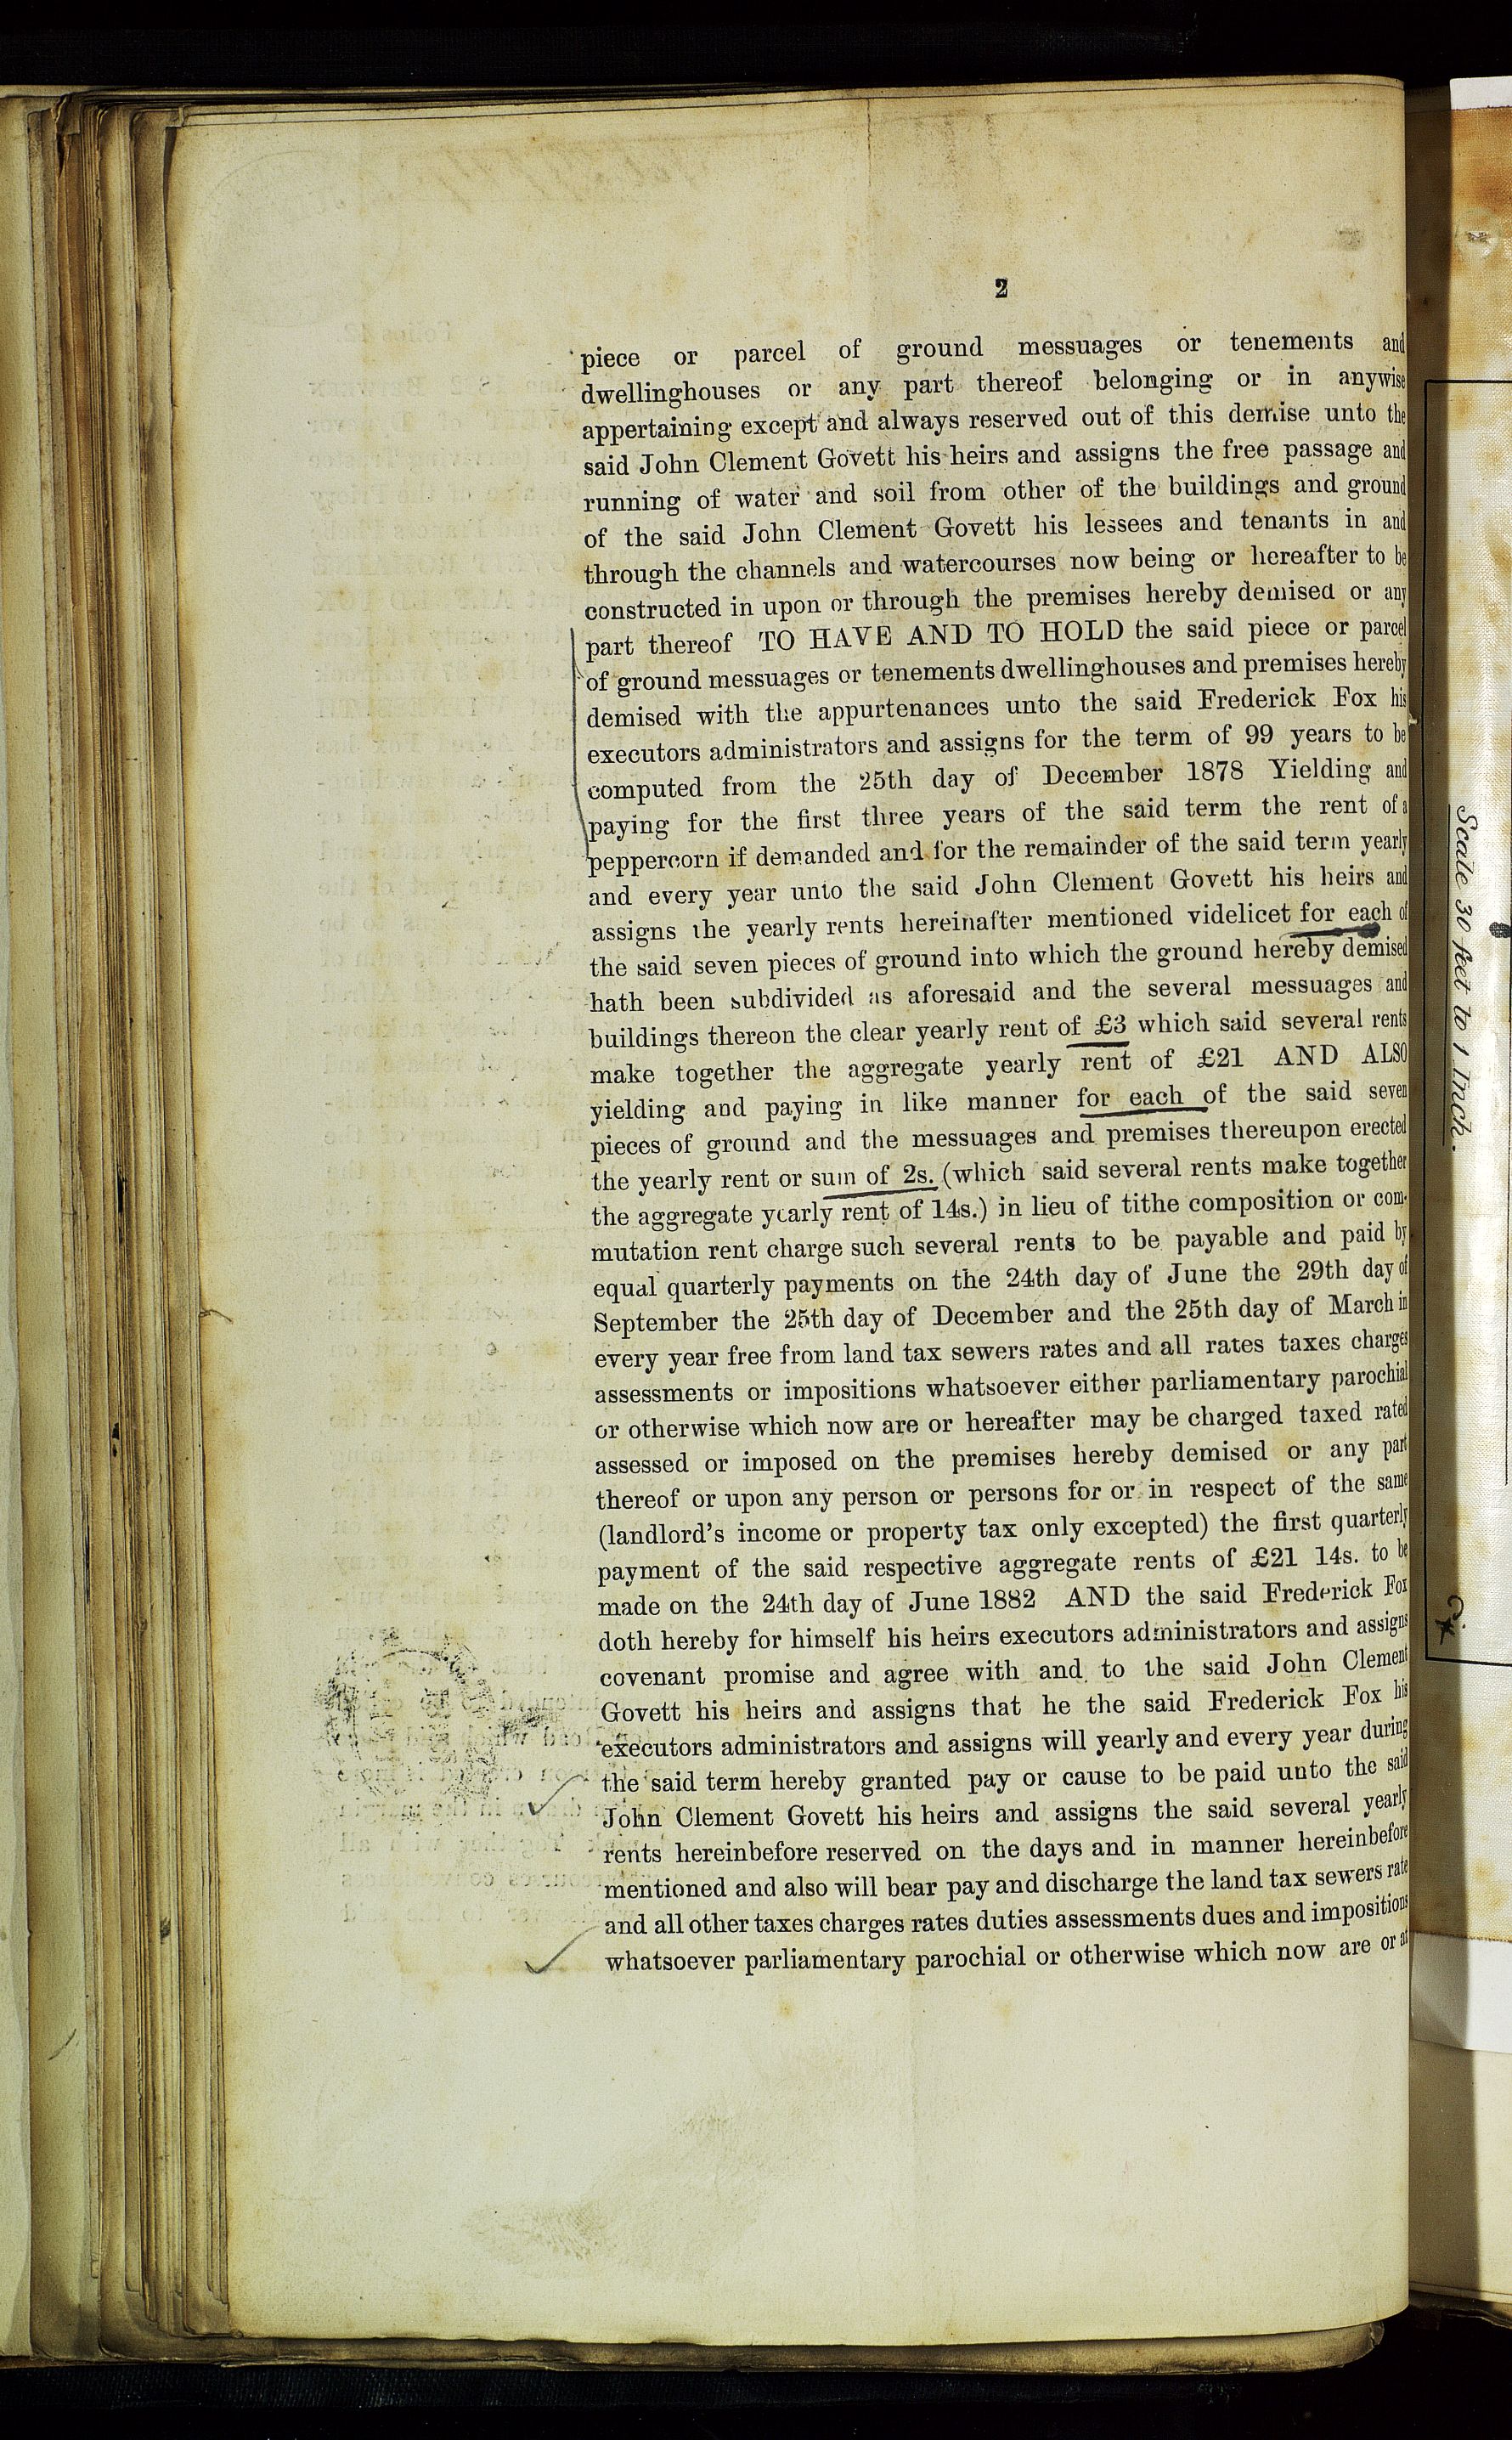 2
piece or parcel of ground messuages or tenements and
dwellinghouses or any part thereof belonging or in anywise
appertaining except and always reserved out of this demise unto the
said John Clement Govett his heirs and assigns the free passage and
running of water and soil from other of the buildings and ground
of the said John Clement Govett his lessees and tenants in and
through the channels and watercourses now being or hereafter to be
constructed in upon or through the premises hereby demised or any
part thereof TO HAVE AND TO HOLD the said piece or parcel
of ground messuages or tenements dwellinghouses and premises hereby
demised with the appurtenances unto the said Frederick Fox his
executors administrators and assigns for the term of 99 years to be
computed from the 25th day of December 1878 Yielding and
paying for the first three years of the said term the rent of a
peppercorn if demanded and for the remainder of the said term yearly
and every year unto the said John Clement Govett his heirs and
assigns the yearly rents hereinafter mentioned videlicet for each of
the said seven pieces of ground into which the ground hereby demised
hath been subdivided as aforesaid and the several messuages and
buildings thereon the clear yearly rent of £3 which said several rents
make together the aggregate yearly rent of £21 AND ALSO
yielding and paying in like manner for each of the said seven
pieces of ground and the messuages and premises thereupon erected
the yearly rent or sum of 2s. (which said several rents make together
the aggregate yearly rent of 14s.) in lieu of tithe composition or com-
mutation rent charge such several rents to be payable and paid by
equal quarterly payments on the 24th day of June the 29th day of
September the 25th day of December and the 25th day of March in
every year free from land tax sewers rates and all rates taxes charges
assessments or impositions whatsoever either parliamentary parochial
or otherwise which now are or hereafter may be charged taxed rated
assessed or imposed on the premises hereby demised or any part
thereof or upon any person or persons for or in respect of the same
(landlord's income or property tax only excepted) the first quarterly
payment of the said respective aggregate rents of £21 14s. to be
made on the 24th day of June 1882 AND the said Frederick Fox
doth hereby for himself his heirs executors administrators and assigns
covenant promise and agree with and to the said John Clement
Govett his heirs and assigns that he the said Frederick Fox his
executors administrators and assigns will yearly and every year during
the said term hereby granted pay or cause to be paid unto the said
John Clement Govett his heirs and assigns the said several yearly
rents hereinbefore reserved on the days and in manner hereinbefore
mentioned and also will bear pay and discharge the land tax sewers rate
and all other taxes charges rates duties assessments dues and impositions
whatsoever parliamentary parochial or otherwise which now are or at
Scale 30 feet to 1 Inch.